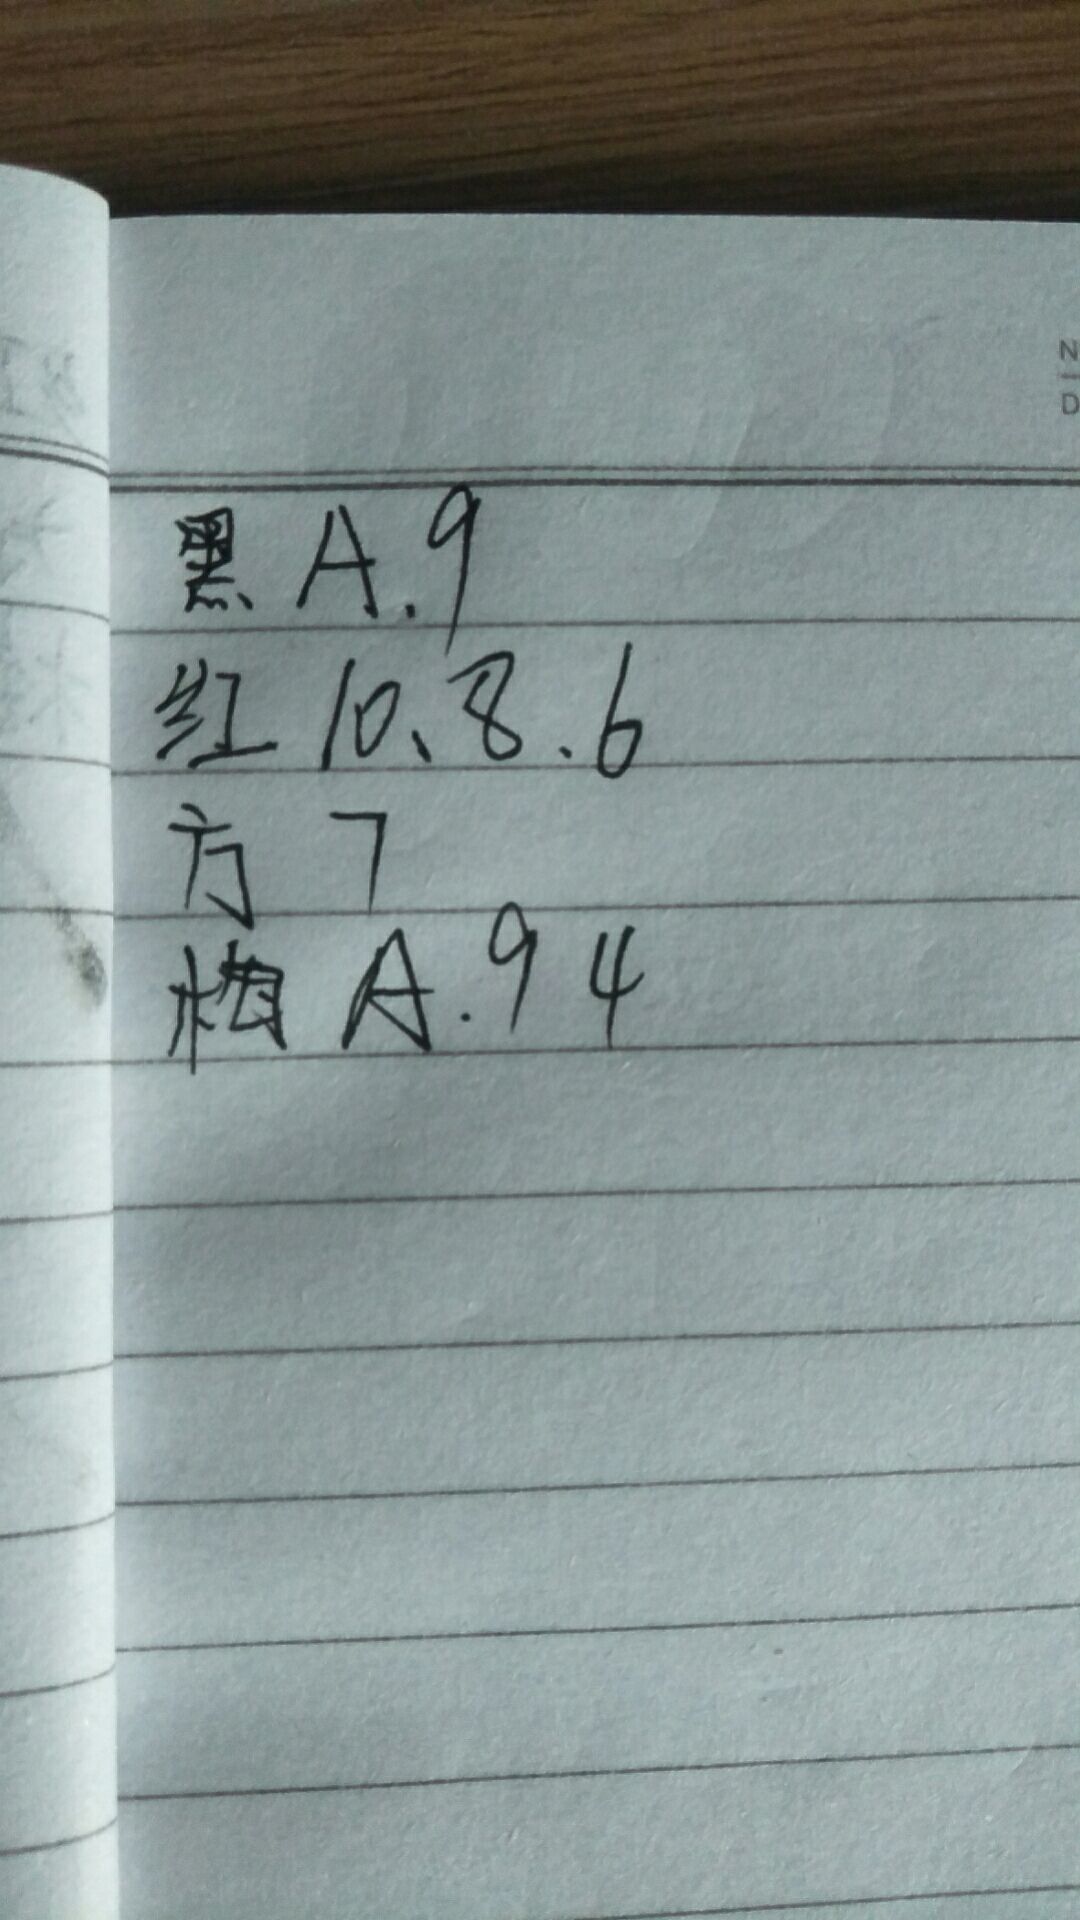 N
D
黑 A.9
红 10、8.6
方 7
梅 A.9 4